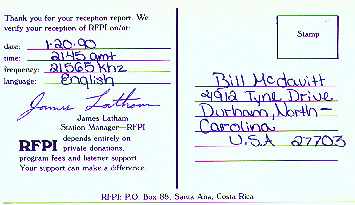 Thank you for your reception report. We
verify your reception of RFPI on/at:
date: 1-20-90
time: 2145 gmt
frequency: 21565 Khz
language: English
James Latham
James Latham
Station Manager—RFPI
RFPI depends entirely on
private donations,
program fees and listener support.
Your support can make a difference.
Stamp
Bill McDavitt
2912 Tyne Drive
Durham, North-
Carolina
U.S.A 27703
RFPI: P.O. Box 88, Santa Ana, Costa Rica